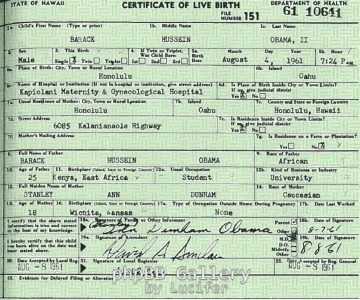 STATE OF HAWAII CERTIFICATE OF LIVE BIRTH
FILE NUMBER 151 61 10641
1a. Child's First Name (Type or print) 1b. Middle Name 1c. Last Name
BARACK HUSSEIN OBAMA, II
2. Sex 3. This Birth 4. If Twin or Triplet, Was Child Born 5a. Birth Date Month Day Year 5b. Hour
Male Single Twin Triplet August 4, 1961 7:24 P.
6a. Place of Birth: City, Town or Rural Location 6b. Island
Honolulu Oahu
6c. Name of Hospital or Institution (If not in hospital or institution, give street address) 6d. Is Place of Birth Inside City or Town Limits?
Kapiolani Maternity & Gynecological Hospital If no, give judicial district
Yes No
7a. Usual Residence of Mother: City, Town or Rural Location 7b. Island 7c. County and State or Foreign Country
Honolulu Oahu Honolulu, Hawaii
7d. Street Address 7e. Is Residence Inside City or Town Limits?
6085 Kalanianaole Highway If no, give judicial district
Yes No
7f. Mother's Mailing Address 7g. Is Residence on a Farm or Plantation?
Yes No
8. Full Name of Father 9. Race of Father
BARACK HUSSEIN OBAMA African
10. Age of Father 11. Birthplace 12a. Usual Occupation 12b. Kind of Business or Industry
25 Kenya, East Africa Student University
13. Full Maiden Name of Mother 14. Race of Mother
STANLEY ANN DUNHAM Caucasian
15. Age of Mother 16. Birthplace 17a. Type of Occupation Outside Home During Pregnancy 17b. Date Last Worked
18 Wichita, Kansas None
I certify that the above stated information is true and correct to the best of my knowledge. 18a. Signature of Parent or Other Informant Parent Other 18b. Date of Signature
Ann Dunham Obama 8-7-61
I hereby certify that this child was born alive on the date and hour stated above. 19a. Signature of Attendant M.D. D.O. Midwife Other 19b. Date of Signature
8-8-61
20. Date Accepted by Local Reg. 21. Signature of Local Registrar 22. Date Accepted by Reg. General
AUG -8 1961 AUG -8 1961
23. Evidence for Delayed Filing or Alteration
phpBB Gallery
by Lucifer